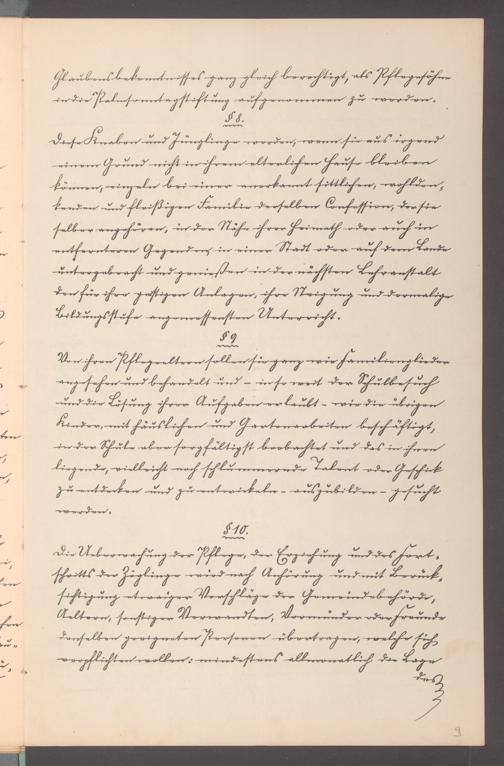 Glaubensbekenntnisses ganz gleich berechtigt, als Pflegesöhne
in die Palmsonntagstiftung aufgenommen zu werden.
§ 8.
Diese Knaben und Jünglinge werden, wenn sie aus irgend
einem Grund nicht in ihrem elterlichen Hause bleiben
können, einzeln bei einer anerkannt sittlichen, wohlden„
kenden und fleißigen Familie derselben Confession, der sie
selber angehören, in der Nähe ihrer Heimath oder auch in
entfernteren Gegenden, in einer Stadt oder auf dem Lande
untergebracht und genießen in der nächsten Lehranstalt
den für ihre geistigen Anlagen, ihre Neigung und dermalige
Bildungsstufe angemessensten Unterricht.
§ 9
Von ihren Pflegeeltern sollen sie ganz wie Familienglieder
angesehen und behandelt und - in so weit der Schulbesuch
und die Lösung ihrer Aufgaben erlaubt - wie die übrigen
Kinder, mit häuslichen und Gartenarbeiten beschäftigt,
in der Schule aber sorgfältigst beobachtet und das in ihnen
liegende, vielleicht noch schlummernde Talent oder Geschick
zu entdecken und zu entwickeln - auszubilden - gesucht
werden.
§ 10.
Die Ueberwachung der Pflege, der Erziehung und des Fort„
schritts der Zöglinge wird nach Anhörung und mit Berück„
sichtigung etwaiger Vorschläge der Gemeindebehörde,
Aeltern, sonstiger Verwandten, Vormünder oder Freunde
derselben geeigneten Personen übertragen, welche sich
verpflichten wollen: mindestens allmonatlich die Lage
des
9